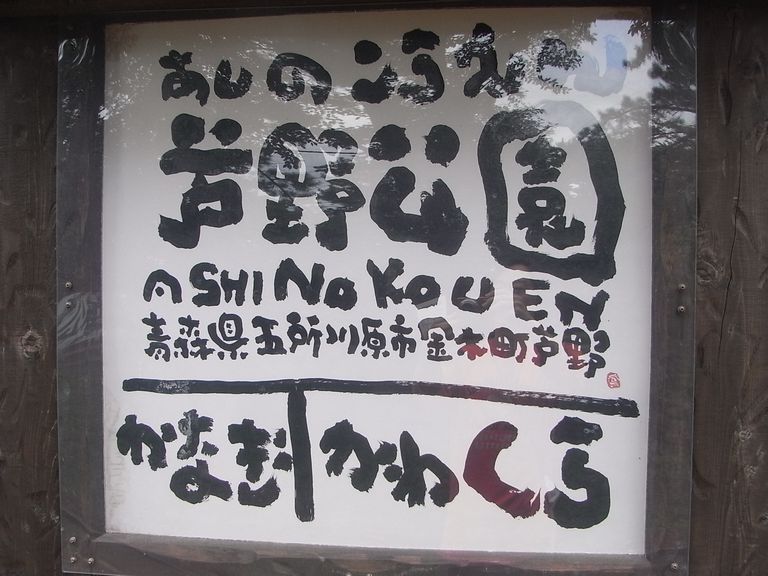 あしのこうえん
芦野公園
ASHINOKOUEN
青森県五所川原市金木町芦野
かなぎ かわくら